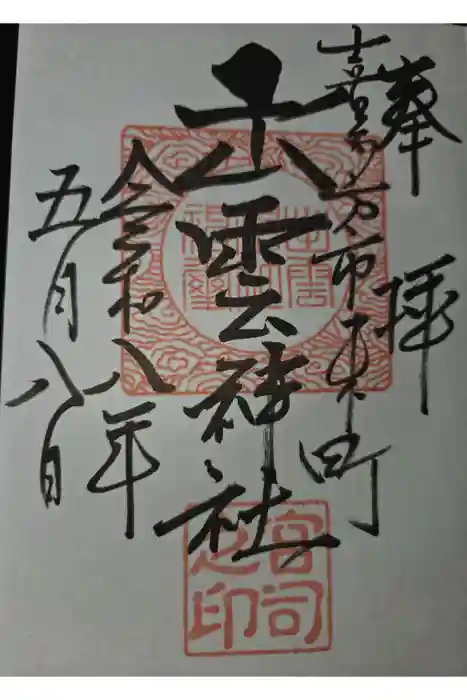 奉拝
喜多方市東町
出雲神社
令和八年
五月八日
宮司之印